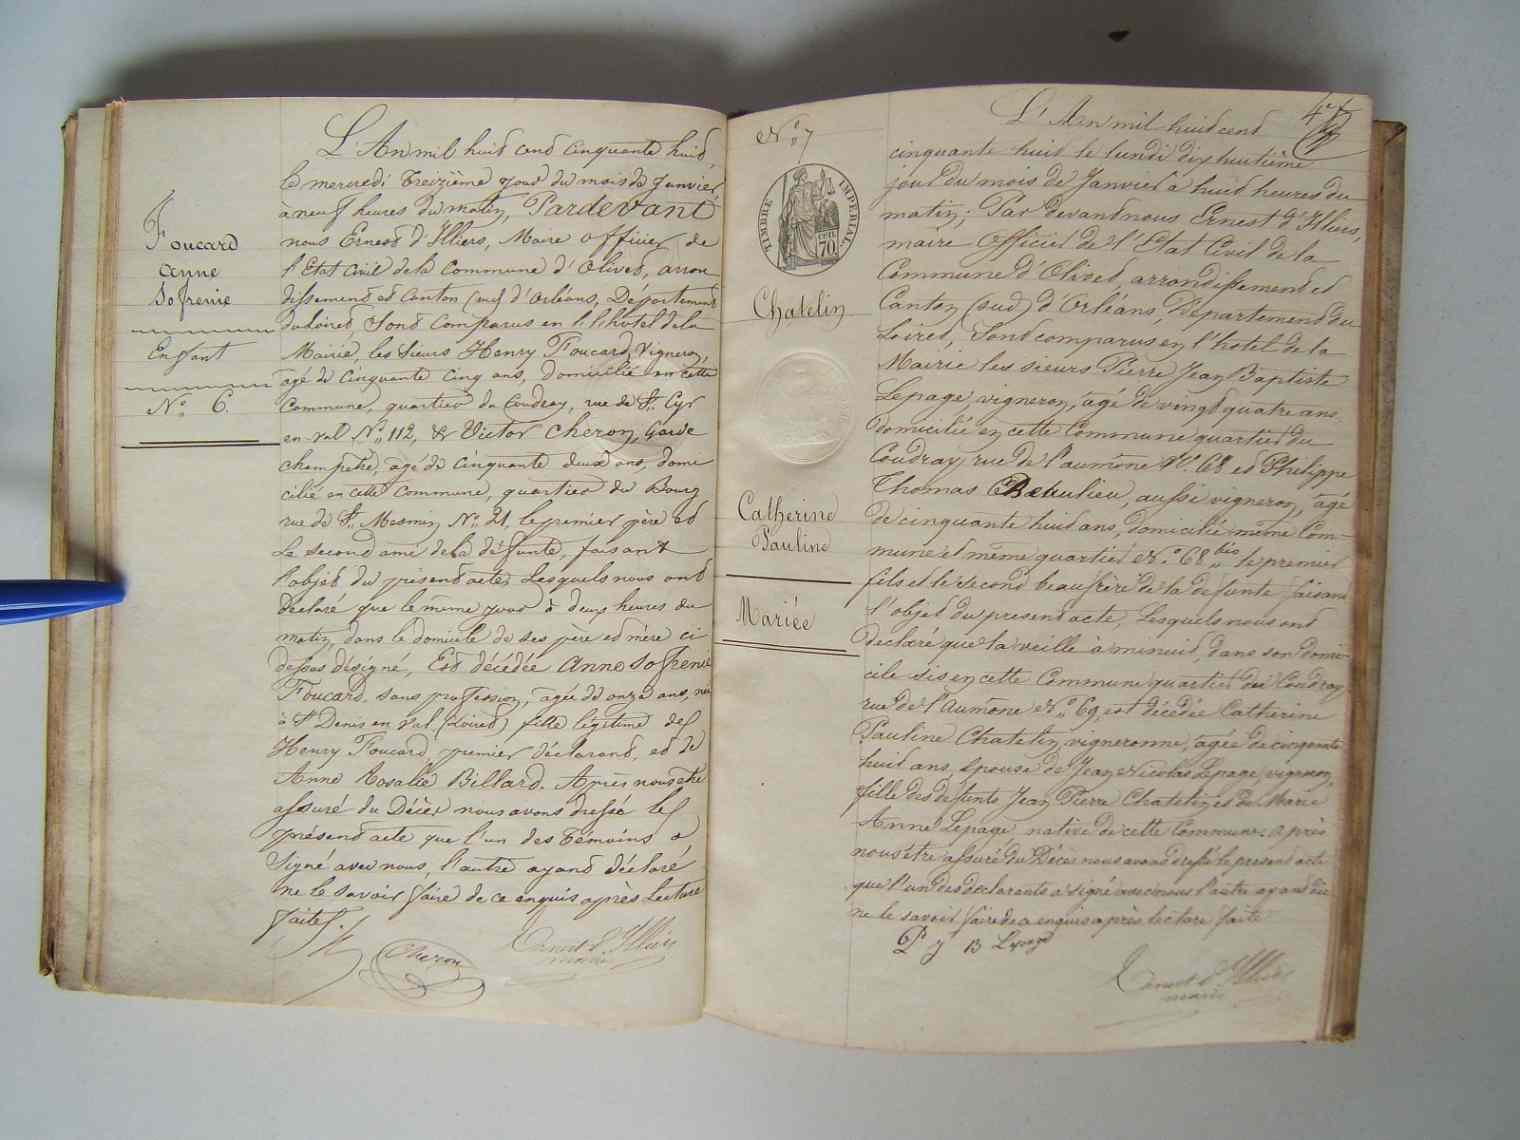 Foucard
Anne
Sofrenie
Enfant
N° 6.
L'An mil huit cent cinquante huit
le mercredi Treizième jour du mois de Janvier,
à neuf heures du matin, Pardevant
nous Ernest d'Illiers, Maire officier de
l'Etat civil de la Commune d'Olivet, arron
dissement et Canton (sud) d'Orléans, Département
du Loiret, Sont Comparus en l'hôtel de la
Mairie, les Sieurs Henry Foucard, Vigneron,
agé de Cinquante Cinq ans, domicilié en cette
Commune, quartier du Coudray, rue de St. Cyr
en val N° 112, & Victor Cheron, Garde
champetre, agé de Cinquante deux ans, domi
cilié en cette Commune, quartier du Bourg
rue de St. Mesmin N° 21, le premier père et
le second ami de la défunte, faisant
l'objet du présent acte, Lesquels nous ont
déclaré que le même jour à deux heures du
matin, dans le domicile de ses père et mère ci
dessus désigné, Est décédée Anne Sofrenie
Foucard, sans profession, agée de onze ans, née
à St Denis en Val (Loiret) fille légitime de
Henry Foucard, premier déclarant, et de
Anne Rosalie Billard. Après nous être
assuré du Décès nous avons dressé le
présent acte que l'un des témoins a
Signé avec nous, l'autre ayant déclaré
ne le savoir faire de ce enquis après Lecture
faite.
Cheron
Ernest d'Illiers
maire
4e
N° 7
TIMBRE IMPERIAL
70
Chatelin
Catherine
Pauline
Mariée
L'An mil huit cent
cinquante huit le lundi dix huitième
jour du mois de Janvier à huit heures du
matin; Par devant nous Ernest d'Illiers,
maire officier de l'Etat Civil de la
Commune d'Olivet, arrondissement et
Canton (sud) d'Orléans, Département du
Loiret, Sont comparus en l'hotel de la
Mairie les sieurs Pierre Jean Baptiste
Lepage vigneron, agé de vingt quatre ans
domicilié en cette Commune quartier du
Coudray, rue de l'aumône N° 68 et Philippe
Thomas Beaulieu, aussi vigneron, agé
de cinquante huit ans, domicilié même Com-
mune et même quartier N° 68 bis le premier
fils et le second beau frère de la défunte faisant
l'objet du present acte, Lesquels nous ont
declaré que la veille à minuit, dans son domi-
cile sis en cette Commune quartier du Coudray
rue de l'Aumône N° 69, est décédée Catherine
Pauline Chatelin, vigneronne, agée de cinquante
huit ans, Epouse de Jean Nicolas Lepage, vigneron,
fille des defunts Jean Pierre Chatelin et de Marie
Anne Lepage native de cette Commune. Après
nous être assuré du Décès nous avons dressé le present acte
que l'un des declarants a signé avec nous l'autre ayant dit
ne le savoir faire de ce enquis après lecture faite
P J B Lepage
Ernest d'Illiers
maire